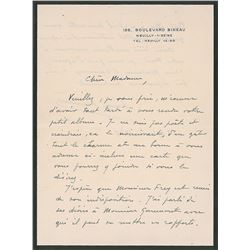 185, BOULEVARD BINEAU
NEUILLY S/SEINE
TEL. MAILLOT 15-89
Chère Madame,
Veuillez, je vous prie, m'excuser
d'avoir tant tardé à vous rendre votre
petit album. Je ne suis pas poète et
craindrais, en le noircissant, d'en gâter
tout le charme et me borne à vous
adresser ci-inclus une carte que
vous pourrez y joindre si vous le
désirez.
J'espère que Monsieur Frey est remis
de son indisposition. J'ai parlé de
ses désirs à Monsieur avec
qui il peut se mettre en rapports.